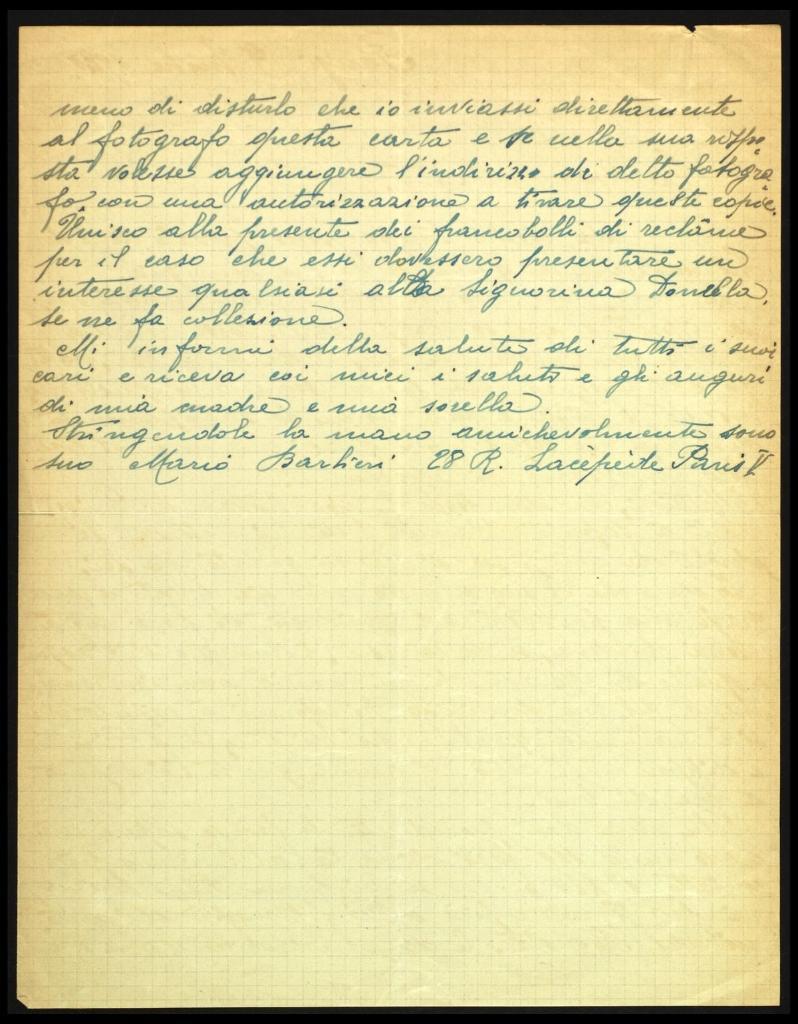 meno di disturbo che io inviassi direttamente
al fotografo questa carta e se nella sua rispo-
sta volesse aggiungere l'indirizzo di detto fotogra
fo, con una autorizzazione a tirare queste copie.
Unisco alla presente dei francobolli di reclâme
per il caso che essi dovessero presentare un
interesse qualsiasi alla Signorina Donella,
se ne fa collezione.
Mi informi della salute di tutti i suoi
cari e riceva coi miei i saluti e gli auguri
di mia madre e mia sorella.
Stringendole la mano amichevolmente sono
suo Mario Barbieri 28 R. Lacépède Paris V